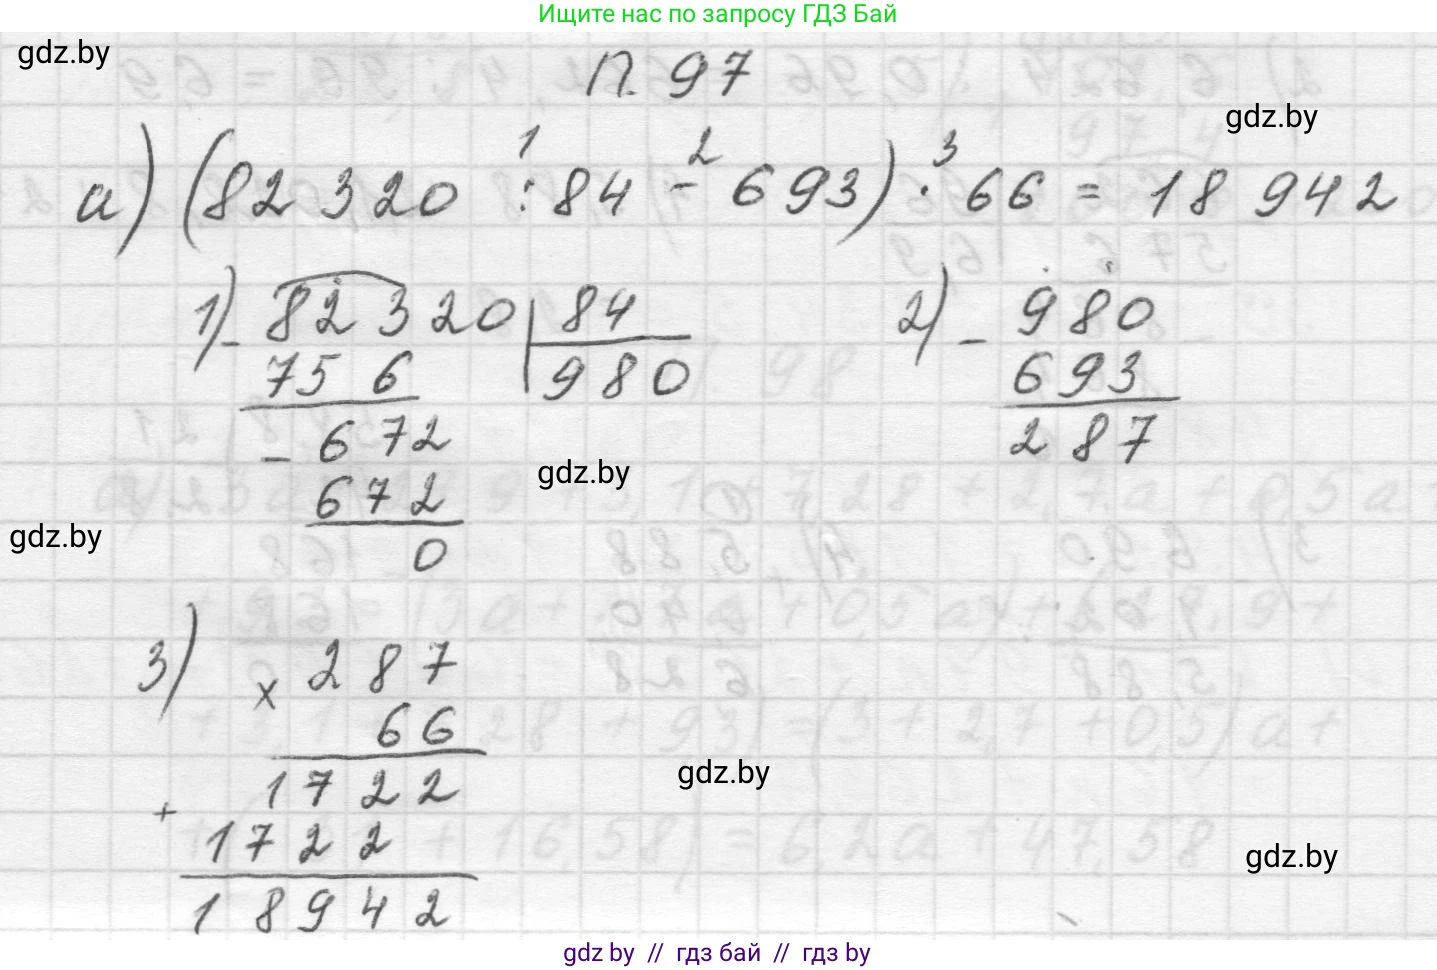 Ищите нас по запросу ГДЗ Бай
gdz.by
П. 97
gdz.by
а) (82 320 : 84 - 693) · 66 = 18 942
1 2 3
1) - 82 320 | 84
75 6 | 980
- 672
672
0
2) - 980
693
287
gdz.by
gdz.by
3) × 287
66
+ 1722
1722
18942
gdz.by
gdz.by
gdz by // гдз бай // гдз by